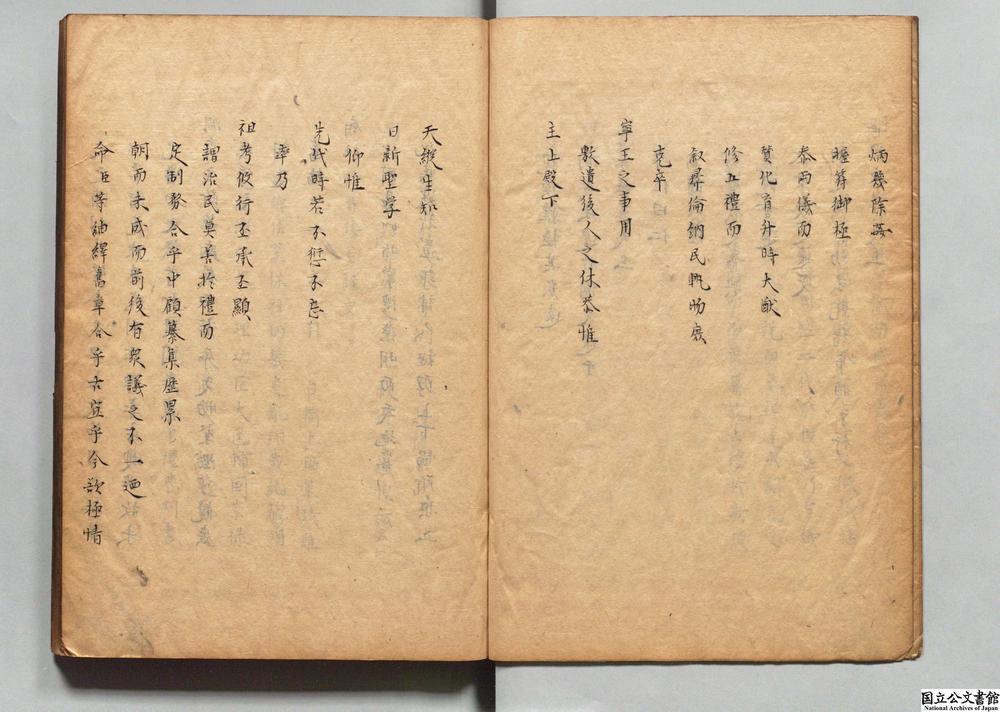 炳幾除
握符御極
泰兩儀而
贊化育升時大猷
修五禮而
叙彛倫納民軌物庶
克卒
寧王之事用
敷遺後人之休恭惟
主上殿下
天縱生知
日新聖學
仰惟
先代時若不愆不忘
率乃
祖考攸行丕承丕顯
謂治民莫善於禮而
定制務合乎中顧纂集歷累
朝而未成而前後有衆議之不一廼
命臣等紬繹舊章合乎古宜乎今欲極情
国立公文書館
National Archives of Japan